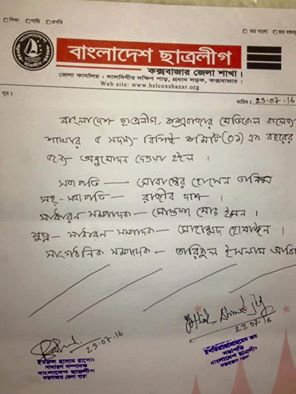 □ শিক্ষা □ শান্তি □ প্রগতি
□ জয় বাংলা □ জয় বঙ্গবন্ধু
বাংলাদেশ ছাত্রলীগ
কক্সবাজার জেলা শাখা।
জেলা কার্যালয়: লালদিঘীর দক্ষিণ পাড়, প্রধান সড়ক, কক্সবাজার।
Web site: www.bslcoxsbazar.org
সূত্র :
তারিখ : 23-07-16
বাংলাদেশ ছাত্রলীগ, কক্সবাজার মেডিকেল কলেজ
শাখার ৫ সদস্য বিশিষ্ট কমিটি (০১) এক বছরের
জন্য অনুমোদন দেওয়া হইল।
সভাপতি — মোবাশ্বের হোসেন
সহ-সভাপতি — রাহীব দাশ।
সাধারন সম্পাদক — মোস্তফা মোঃ ইমন।
যুগ্ম-সাধারন সম্পাদক — মোহাম্মদ হোসাইন।
সাংগঠনিক সম্পাদক — ইসলাম
23.07.16
23.07.16
ইমরুল হাসান রাশেদ
সাধারণ সম্পাদক
বাংলাদেশ ছাত্রলীগ
কক্সবাজার জেলা শাখা
সভাপতি
বাংলাদেশ ছাত্রলীগ
কক্সবাজার জেলা